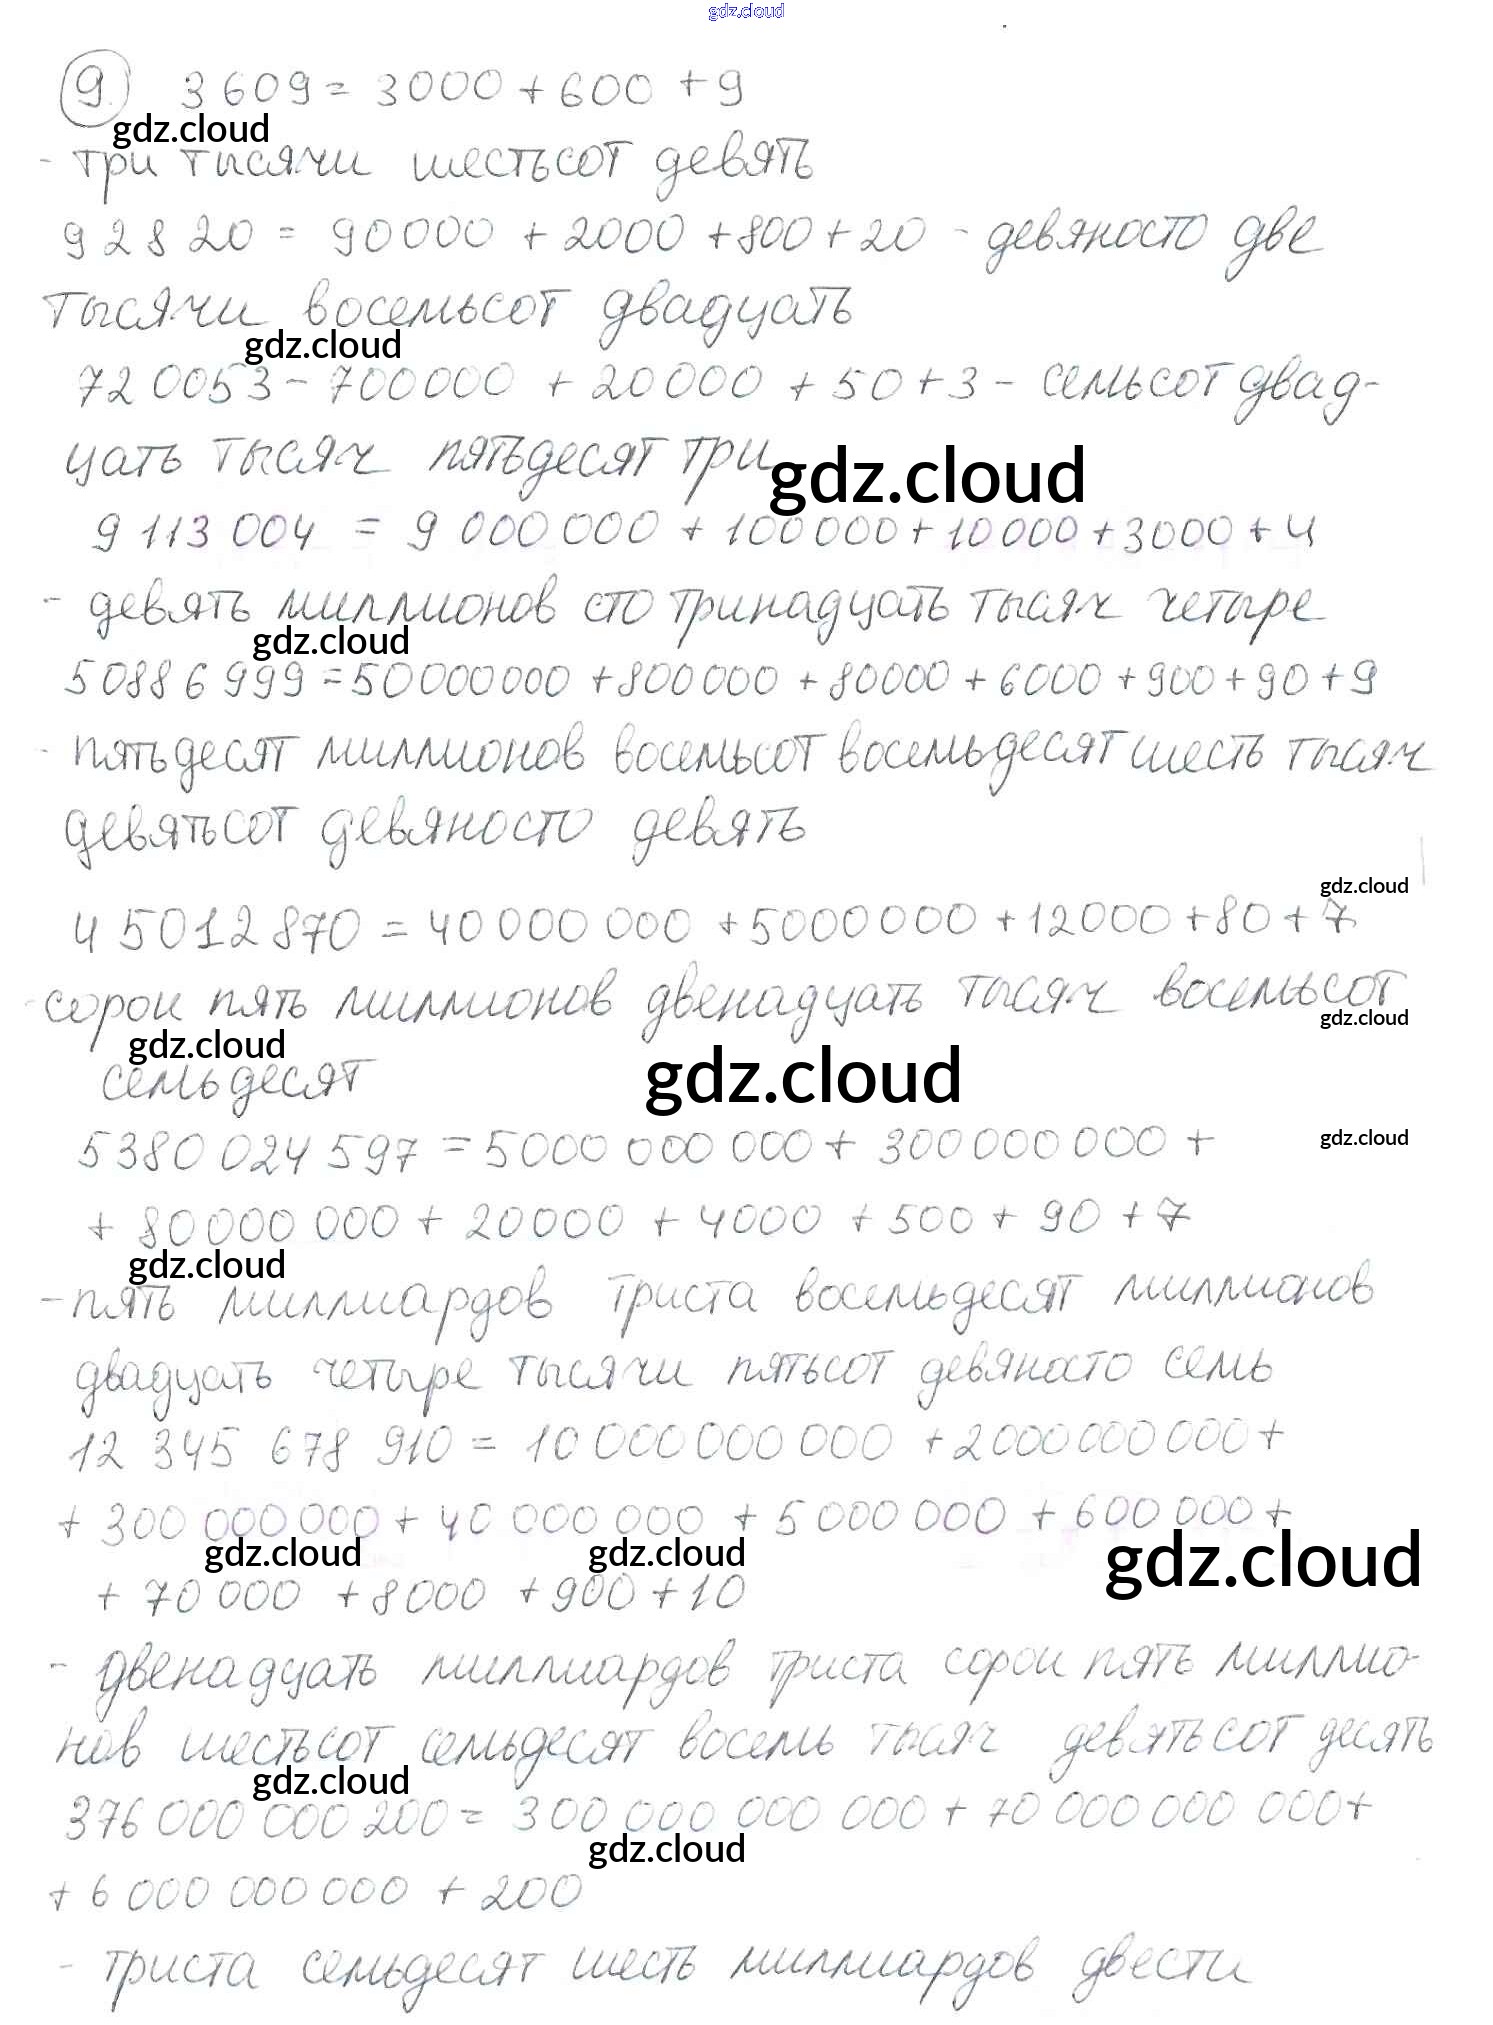 gdz.cloud
9 3609 = 3000 + 600 + 9
gdz.cloud
- три тысячи шестьсот девять
92820 = 90000 + 2000 + 800 + 20 - девяносто две
тысячи восемьсот двадцать
gdz.cloud
720053 - 700000 + 20000 + 50 + 3 - семьсот двад-
цать тысяч пятьдесят три
gdz.cloud
9 113 004 = 9 000 000 + 100 000 + 10 000 + 3000 + 4
- девять миллионов сто тринадцать тысяч четыре
gdz.cloud
50886999 = 50000000 + 800000 + 80000 + 6000 + 900 + 90 + 9
- пятьдесят миллионов восемьсот восемьдесят шесть тысяч
девятьсот девяносто девять
gdz.cloud
45012870 = 40 000 000 + 5000000 + 12000 + 80 + 7
- сорок пять миллионов двенадцать тысяч восемьсот
gdz.cloud
gdz.cloud
семьдесят
gdz.cloud
5380 024 597 = 5000 000 000 + 300 000 000 +
gdz.cloud
+ 80 000 000 + 20000 + 4000 + 500 + 90 + 7
gdz.cloud
- пять миллиардов триста восемьдесят миллионов
двадцать четыре тысячи пятьсот девяносто семь
12 345 678 910 = 10 000 000 000 + 2000 000 000 +
+ 300 000 000 + 40 000 000 + 5 000 000 + 600 000 +
gdz.cloud gdz.cloud gdz.cloud
+ 70 000 + 8000 + 900 + 10
- двенадцать миллиардов триста сорок пять миллио-
нов шестьсот семьдесят восемь тысяч девятьсот десять
gdz.cloud
376 000 000 200 = 300 000 000 000 + 70 000 000 000 +
gdz.cloud
+ 6 000 000 000 + 200
- триста семьдесят шесть миллиардов двести